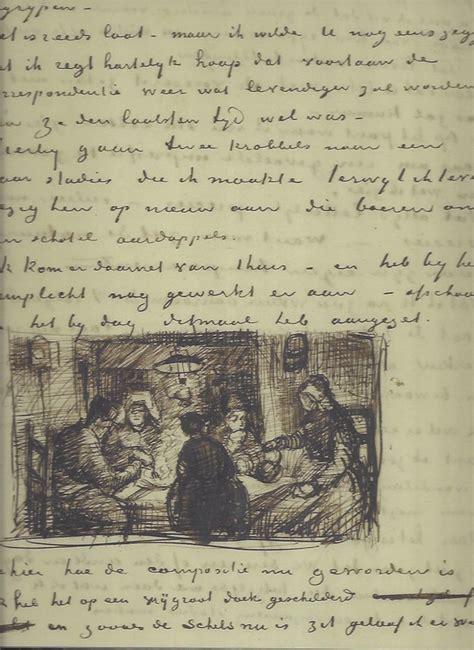 grypen –
et is reeds laat – maar ik wilde U nog eens zeg
et ik regt hartelyk hoop dat voortaan de
rrespondentie weer wat levendiger zal worden
an ze den laatsten tyd wel was –
ierby gaan twee krabbels naar een
aar studies die ik maakte terwyl ik teve
ezig ben op nieuw aan die boeren om
en schotel aardappels.
k kom er daarnet van thuis – en heb by he
amplicht nog gewerkt er aan – ofschoo
het by dag ditmaal heb aangezet.
ehier hoe de compositie nu geworden is
k heb het op een vrij groot doek geschilderd
en zooals de schets nu is zit geloof ik er wa